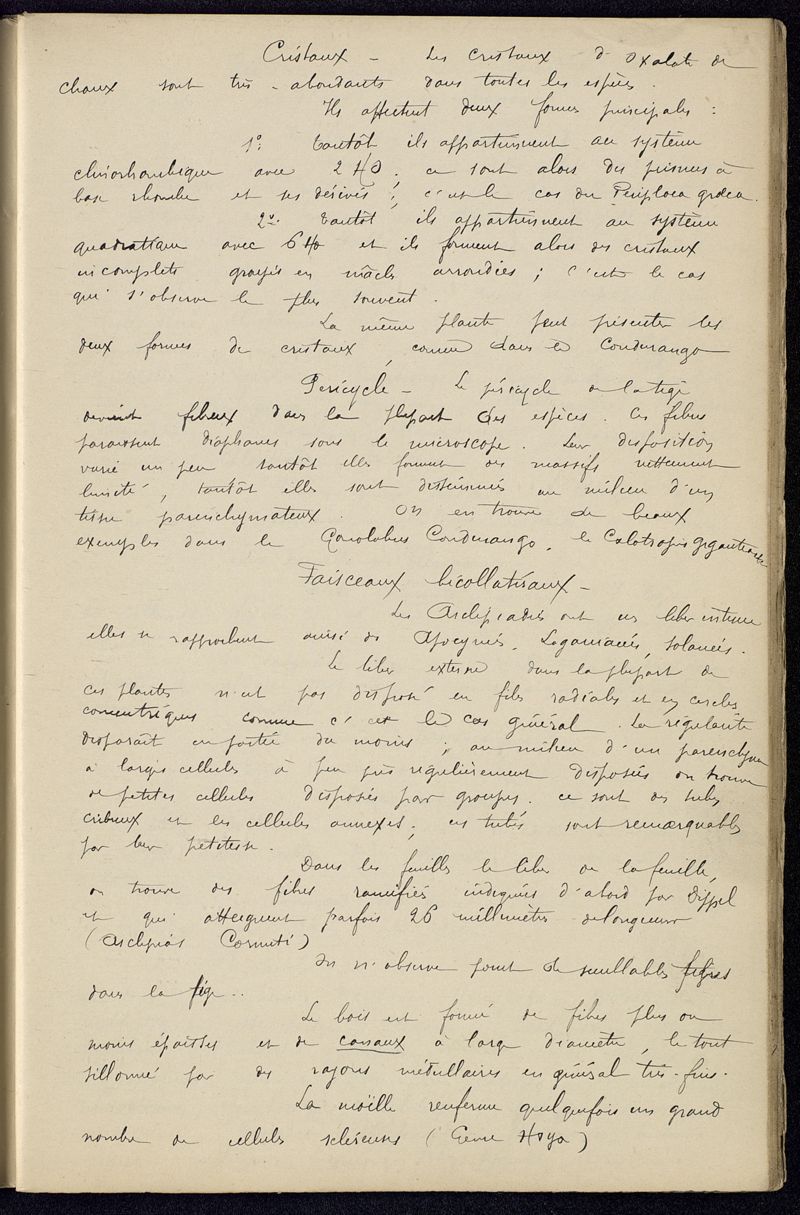 Cristaux – Les cristaux d'oxalate de
chaux sont très-abondants dans toutes les espèces.
Ils affectent deux formes principales :
1º: tantôt ils appartiennent au système
clinorhombique avec 2 HO ; ce sont alors des prismes à
base rhombe et ses dérivés ; c'est le cas du Periploca graeca.
2º. tantôt ils appartiennent au système
quadratique avec 6 HO et ils forment alors des cristaux
incomplets groupés en mâcles arrondies ; c'est le cas
qui s'observe le plus souvent.
La même plante peut présenter les
deux formes de cristaux, comme dans le Condurango
Péricycle – Le péricycle de la tige
devient fibreux dans la plupart des espèces. Ces fibres
paraissent diaphanes sous le microscope. Leur disposition
varie un peu tantôt elles forment des massifs nettement
limités, tantôt elles sont disséminées au milieu d'un
tissu parenchymateux. On en trouve de beaux
exemples dans le Gonolobus Condurango, le Calotropis gigantea
Faisceaux bicollatéraux –
Les Asclépiadées ont un liber interne
elles se rapprochent ainsi des Apocynées, Loganiacées, Solanées.
Le liber externe dans la plupart de
ces plantes n'est pas disposé en files radiales et en cercles
concentriques comme c'est le cas général. La régularité
disparaît en partie du moins ; au milieu d'un parenchyme
à larges cellules à peu près régulièrement disposées on trouve
de petites cellules disposées par groupes. ce sont des tubes
cribreux et les cellules annexes. ces tubes sont remarquables
par leur petitesse.
Dans les feuilles le liber de la feuille,
on trouve des fibres ramifiées indiquées d'abord par Dippel
et qui atteignent parfois 26 millimètres de longueur
(Asclepias Cornuti)
On n'observe point de semblables fibres
dans la tige..
Le bois est formé de fibres plus ou
moins épaisses et de canaux à large diamètre, le tout
sillonné par des rayons médullaires en général très-fins.
La moëlle renferme quelquefois un grand
nombre de cellules scléreuses (Genre Hoya)